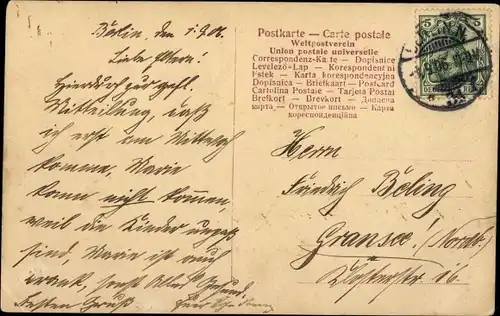 Berlin, den 1.9.06.
Liebe Eltern!
Hierdurch zur gefl.
Mitteilung, daß
ich erst am Mittwoch
komme, Marie
kann nicht kommen,
weil die Kinder
sind, Marie ist auch
krank, sonst Alles Gesund.
Besten Gruß.
Postkarte - Carte postale
Weltpostverein
Union postale universelle
Correspondenz-Karte - Dopisnice
Levelező-Lap - Korespondent ni
listek - Karta korespondencyjna
Dopisnica - Briefkaart - Postcard
Cartolina Postale - Tarjeta Postal
Brefkort - Brevkort - Дописна
карта - Открытое письмо - Карта
кореспонденційна
5 5
DEUTSCHES REICH
BERLIN
Herrn
Friedrich Böling
Gransee (Nordb.)
Klosterstr. 16.